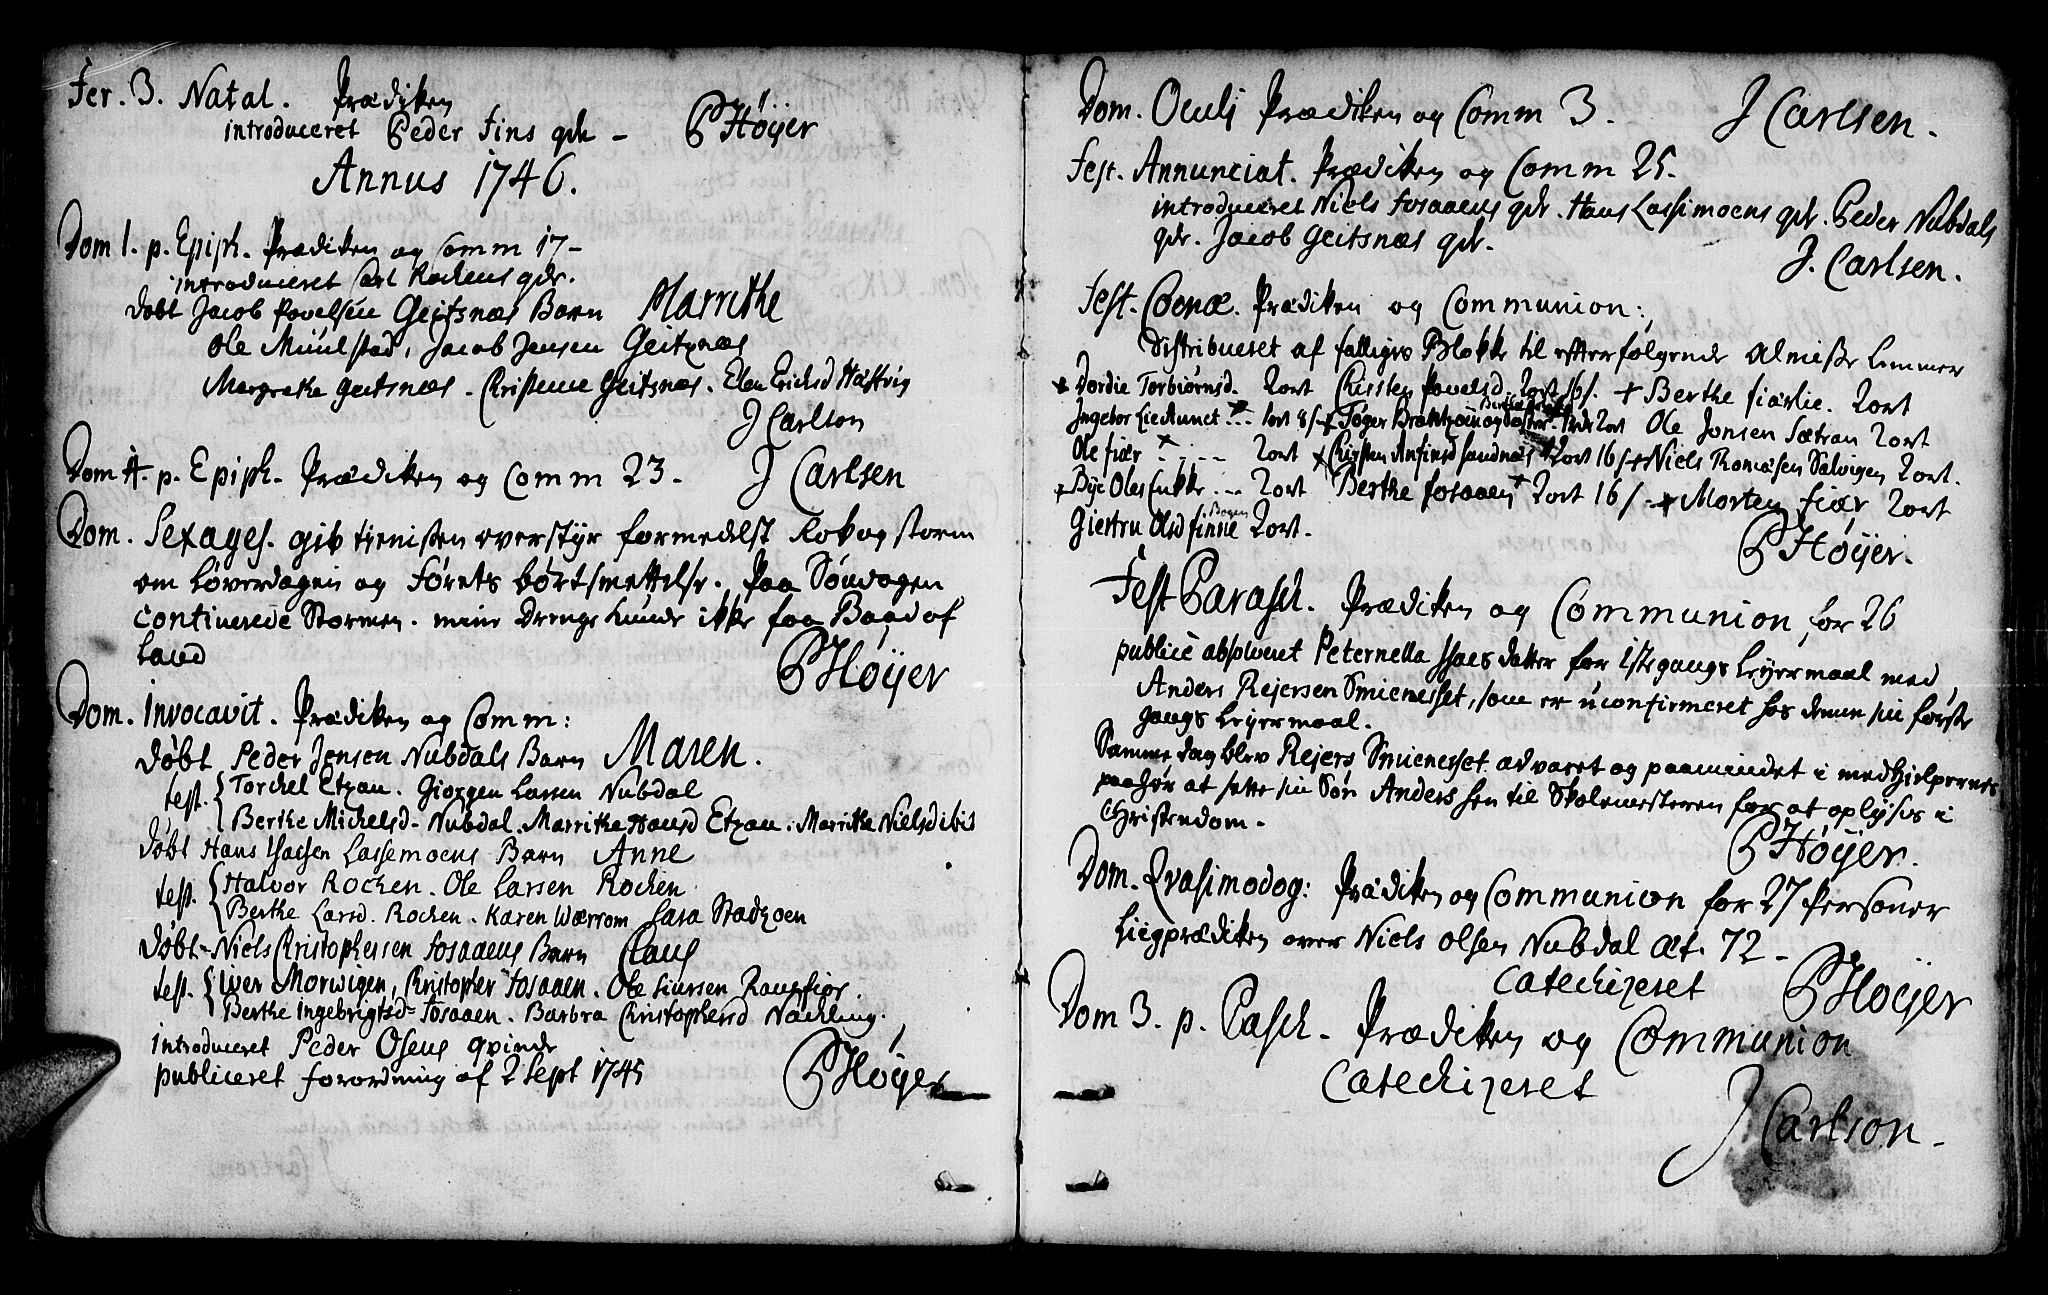 Fer. 3. Natal. Prædiken
introduceret Peder Fins qde - PHøyer
Annus 1746.
Dom 1. p. Epiph. Prædiken og Comm 17-
introduceret Carl Rochens qde.
døbt Jacob Povelsen Geitsnæs Barn Marrithe
Ole Muulstad, Jacob Jensen Geitznæs
Margrethe Geitsnæs. Christense Geitsnæs. Elen Ericksd Hastvig
J Carlson
Dom 4. p. Epiph. Prædiken og Comm 23. J Carlsen
Dom. Sexages. gudstienisten overstyr formedelst Rok og storm
om Løverdagen og Førets børtsmettelse. Paa Søndagen
continerede Stormen. mine Drenge kunde ikke faa Baad af
Land PHøyer
Dom. Invocavit. Prædiken og Comm:
døbt Peder Jensen Nubdals Barn Maren.
test. Torchel Etzan. Giørgen Larsen Nubdal
Berthe Michelsd- Nubdal. Marrithe Hansd Etzan. Marrithe Nielsd ibid
døbt Hans Isacsen Lassemoens Barn Anne
test. Halvor Rochen. Ole Larsen Rochen
Berthe Larsd. Rochen. Karen Wærrom Sara Stadzøen
døbt- Niels Christophersen Fosaaens Barn Claus
test. Iver Morwigen, Christopher Fosaaen. Ole Siursen
Berthe Ingebrigtsd- Fosaaen. Barbra Christophersd Nachling.
introduceret Peder Osens qvinde
publiceret forordning af 2 Sept 1745 PHøyer
Dom. Oculi Prædiken og Comm 3. J Carlsen.
Fest. Annunciat. Prædiken og Comm 25.
introduceret Niels Fosaaens qde. Hans Lassimoens qde. Peder Nubdals
qde. Jacob Geitsnæs qde.
J. Carlsen.
Fest. Coenæ. Prædiken og Communion:
Distribueret af fattiges Blokke til efterfølgende Almisse Lemmer
+ Dordie Torbiørnsd. 2ort Chirsten Povelsd. 2ort 16/. + Berthe Fiærlie. 2ort
Ingebor Liedtunet + -- 1ort 8/ + Tøger 2ort Ole Jonsen Sætran 2ort
Ole Fiær + ---- 2ort + Chirsten Anfinsd Sandnæs 2ort 16/ + Niels Thomæsen Salvigen 2ort.
+ Byje Oles Enkke --- 2ort Berthe Fosaaen + 2ort 16/ - + Morten Fiær 2ort
Giertru Olsd Finne Bogen 2ort.
PHøyer.
Fest Parasch. Prædiken og Communion for 26
publice absolveret Peternella Isaesdatter for 1ste gangs Leyermaal med
Anders Rejersen Smienesset, som er uconfirmeret hos denne sin første
gangs Leyermaal.
Samme dag blev Rejers Smienesset advaret og paamindet i medhielpernes
paahør at sette sin Søn Anders hen til Skolemesteren for at oplyses i
Christendom.
PHøyer.
Dom. Qvasimodog: Prædiken og Communion for 27 Personer
Liigprædiken over Niels Olsen Nubdal æt. 72-
Catechizeret PHøyer
Dom 3. p. Pasch. Prædiken og Communion
Catechizeret
J Carlson.